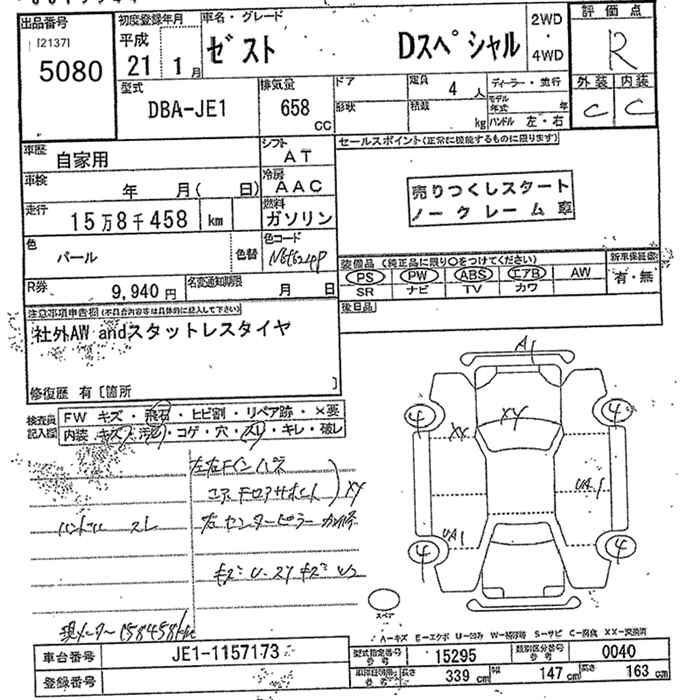 出品番号
[2137]
5080
初度登録年月
平成
21 1月
車名・グレード
ゼスト Dスペシャル
2WD
・
4WD
評価点
R
外装 内装
C C
型式
DBA-JE1
排気量
658
cc
ドア
形状
定員 4人
積載 kg
ディーラー・並行
モデル年式 年
ハンドル 左・右
車歴
自家用
シフト
AT
車検 年 月( 日)
冷房
AAC
走行
15万8千458 km
燃料
ガソリン
色
パール
色替
色コード
NH624P
R券
9,940円
名変通知期限 月 日
セールスポイント(正常に機能するものに限ります)
売りつくしスタート
ノークレーム車
装備品(純正品に限り○をつけてください)
PS PW ABS エアB AW
SR ナビ TV カワ
新車保証書
有・無
後日品
注意事項申告欄(不具合内容等は具体的に記入して下さい)
社外AW andスタットレスタイヤ
修復歴 有 [箇所 ]
検査員
記入欄
FW キズ・飛石・ヒビ割・リペア跡・×要
内装 キズ・汚れ・コゲ・穴・スレ・キレ・破レ
左右Fインパネ
コアサポート
XY
ハンドル スレ
左センターピラー
現メーター158458km
A1
XY
XX
UA1
UA1
4
4
4
4
スペア
A-キズ E-エクボ U-凹み W-補修跡 S-サビ C-腐食 XX-交換済
車台番号
JE1-1157173
登録番号
型式指定番号
参考
15295
類別区分番号
参考
0040
長さ 339cm 幅 147cm 高さ 163cm